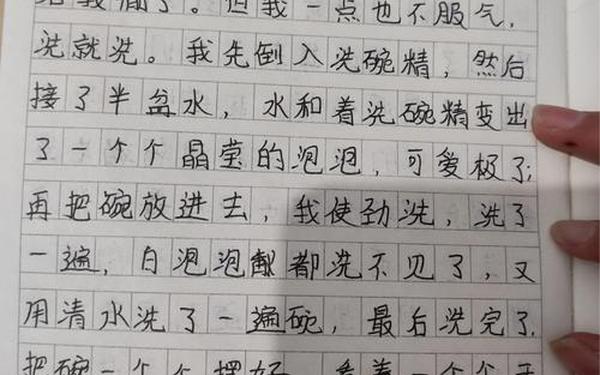 给我滴了。但我一点也不服气,
洗就洗。我先倒入洗碗精,然后
接了半盆水,水和着洗碗精变出
了一个个晶莹的泡泡,可爱极了;
再把碗放进去,我使劲洗,洗了
一遍,白泡泡都洗不见了,又
用清水洗了一遍碗,最后洗完了.
把碗一个个摆好,看着一个个干